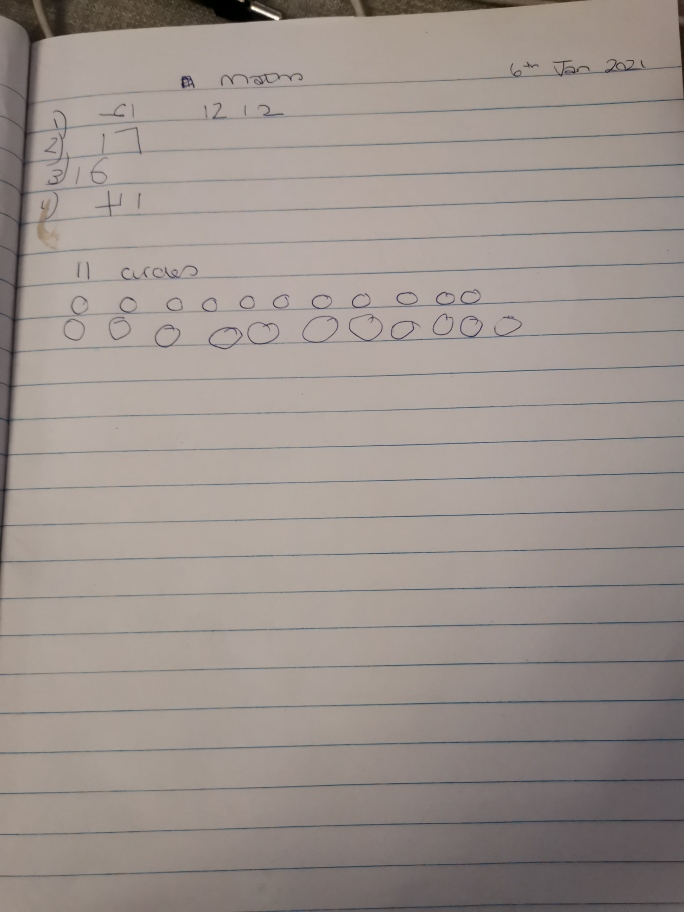 Maths 6th Jan 2021
1) 12 12
2) 17
3) 16
4) 11
11 circles